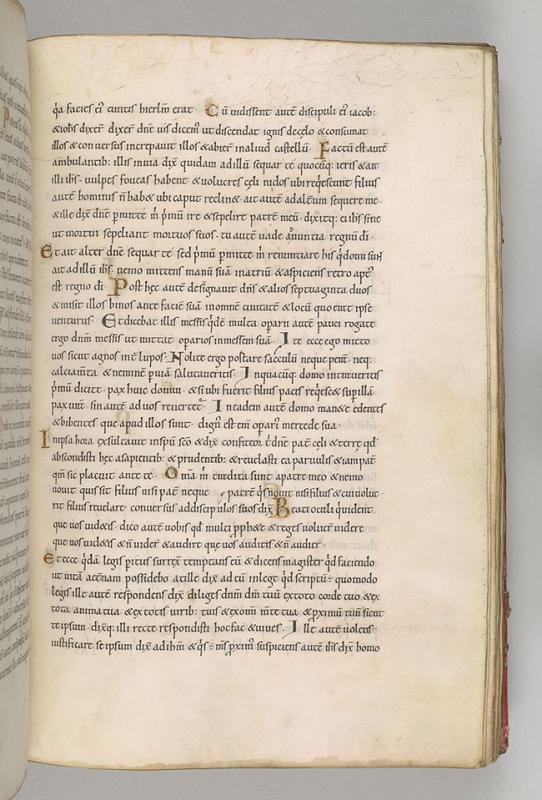 q̄a facies ei' euntis hierlm̄ erat · Cū uidissent autē discipuli ei' iacob:
& ioh̄s dixer̄ dn̄e uis dicim' ut discendat ignis de cęlo & consumat
illos & conuersus increpauit illos & abier̄ in aliud castellū · Factū est autē
ambulantib: illis in uia dix̄ quidam ad illū sequar te quocūq: ieris & ait
illi ih̄s · uulpes foueas habent & uolucres cęli nidos ubi reqescunt filius
autē hominis n̄ hab& ubi caput reclin& · ait autē ad alterum sequere me ·
& ille dix̄ dn̄e p̄mitte m̄ p̄mū ire & sepelire patrē meū · dixitq: ei ih̄s sine
ut mortui sepeliant mortuos suos · tu autē uade adnuntia regnū di ·
Et ait alter dn̄e sequar te sed p̄mū p̄mitte m̄ renuntiare his q̄ domi sun̄
ait ad illū ih̄s · nemo mittens manū suā in atriū & aspiciens retro apt'
est regno di · Post hęc autē designauit dn̄s & alios septuaginta duos
& misit illos binos ante faciē suā in omnē ciuitatē & locū quo erat ipse
uenturus · Et dicebat illis messis q̄dē multa operarii autē pauci rogate
ergo dnm̄ messis ut mittat operarios in messem suā · Ite ecce ego mitto
uos sicut agnos int̄ lupos · Nolite ergo portare sacculū neque perā · neq:
calciam̄ta & neminē p̄ uiā salutaueritis · In quacūq: domū intraueritis
p̄mū dicite · pax huic domui · & si ubi fuerit filius pacis reqesc& sup illā
pax ur̄a · sin autē ad uos reuertet' · In eadem autē domo man&e edentes
& bibentes que apud illos sunt · dign' est eni operari' mercede sua ·
In ipsa hora exsultauit in sp̄u sc̄o & dix̄ confiteor t̄ dn̄e pat̄ cęli & terrę qd
abscondisti hęc a sapientib: & prudentib: & reuelasti ea paruulis & iam pat̄
qm̄ sic placuit ante te · Om̄a m̄ tradita sunt a patre meo & nemo
nouit quis sit filius nisi pat̄ neque patrē q̄s nouit nisi filius & cui uolue-
rit filius reuelare · conuersus ad discipulos suos dix̄ Beati oculi q̄ uident
que uos uid&is · dico autē uobis qd multi p̄ph&e & reges uoluer̄ uidere
que uos uid&is & n̄ uider̄ & audire que uos auditis & n̄ audier̄ ·
Et ecce q̄dā legis p̄itus surrex̄ temptans eū & dicens magister q̄d faciendo
ut uitā aet̄nam possidebo at ille dix̄ ad eū in lege q̄d scriptū ÷ quomodo
legis ille autē respondens dix̄ diliges dnm̄ dm̄ tuū ex toto corde tuo & ex
tota anima tua & ex totis uirib: tuis & ex omi m̄te tua & p̄ximū tuū sicut
te ipsum · dix̄q: illi recte respondisti hoc fac & uiues · Ille autē uolens
iustificare se ipsum dix̄ ad ih̄m & q̄s ÷ m̄s p̄xim' suspiciens autē ih̄s dix̄ homo